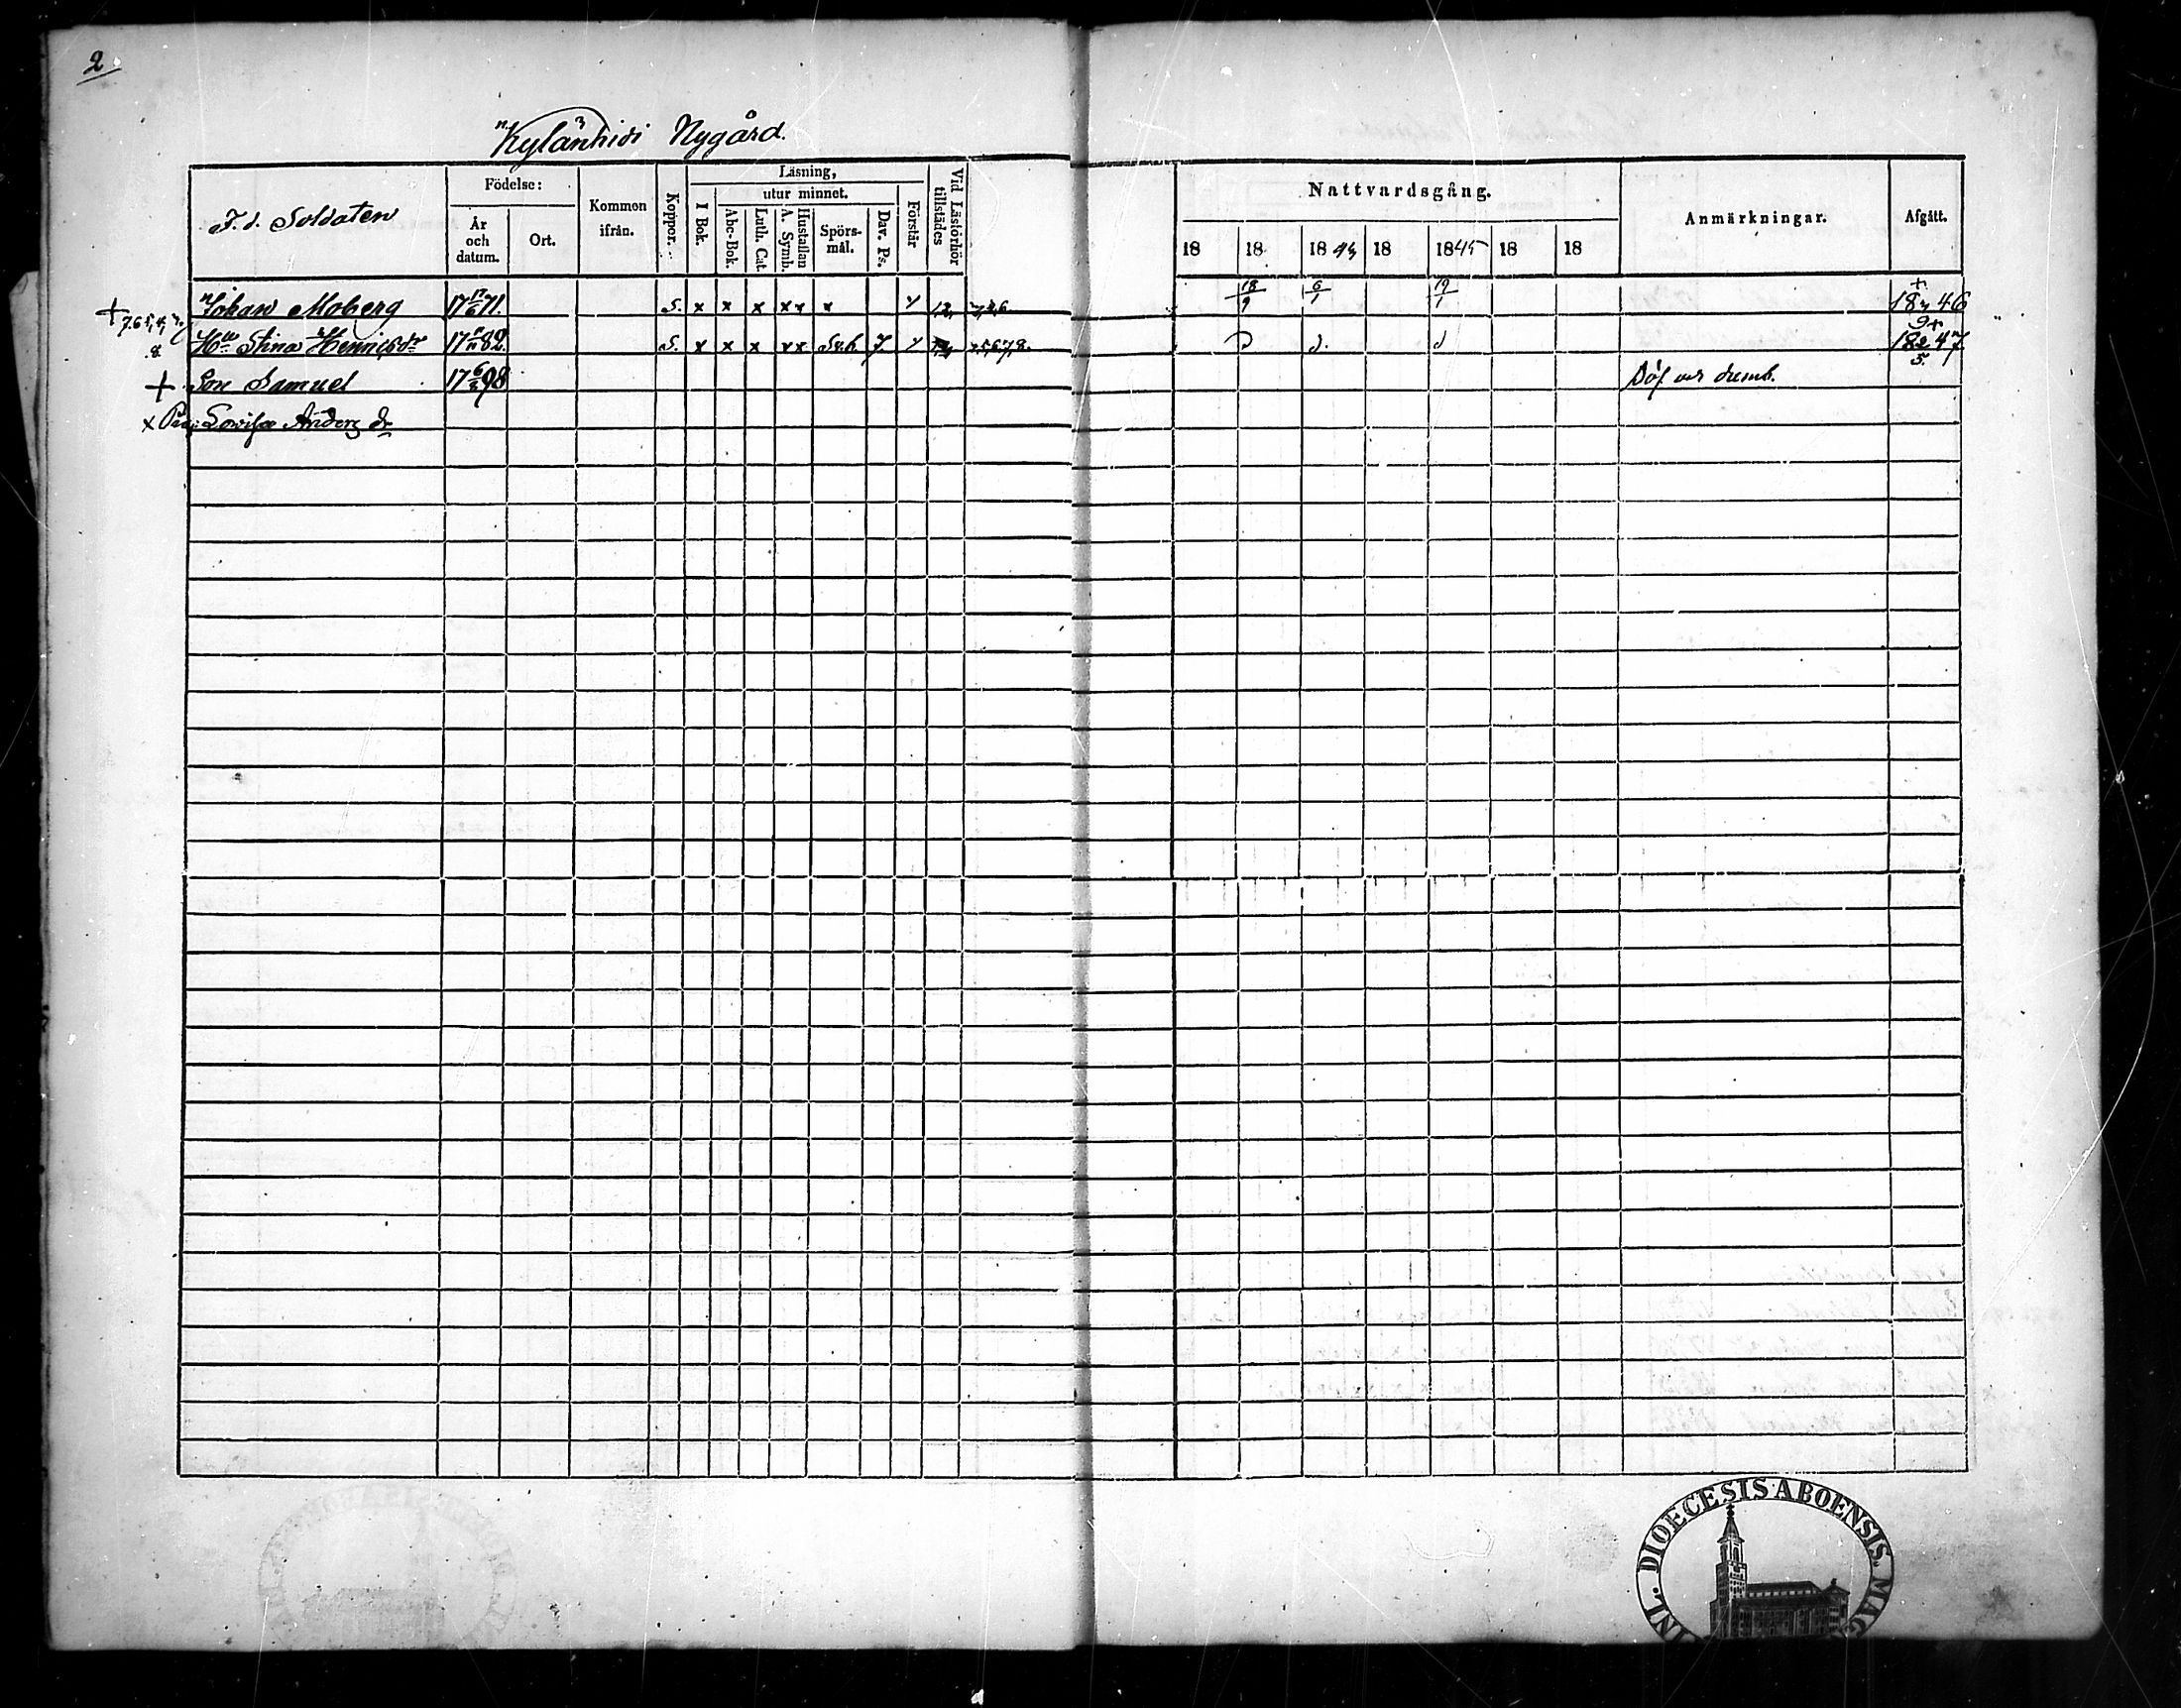 2
Kylänhidi Nygård.
F. d. Soldaten
Födelse:
År och datum.
Ort.
Kommen ifrån.
Koppor.
Läsning,
I Bok.
utur minnet.
Abc-Bok.
Luth. Cat.
Hustaflan A. Symb.
Spörsmål.
Dav. Ps.
Förstår
Vid Läsförhör tillstädes
Nattvardsgång.
18 18 18 43 18 1845 18 18
Anmärkningar.
Afgått.
Johan Moberg 17 17/6 71. S. x x x x x x 18/9 6/1 19/1 + 18 46
Stina 17 82. S. x x x x x 7 9 + 18 47
+ Son Samuel 17 6/8 98 Döf och dumb.
x Lovisa Anders dr
DIOECESIS ABOENSIS. MAG